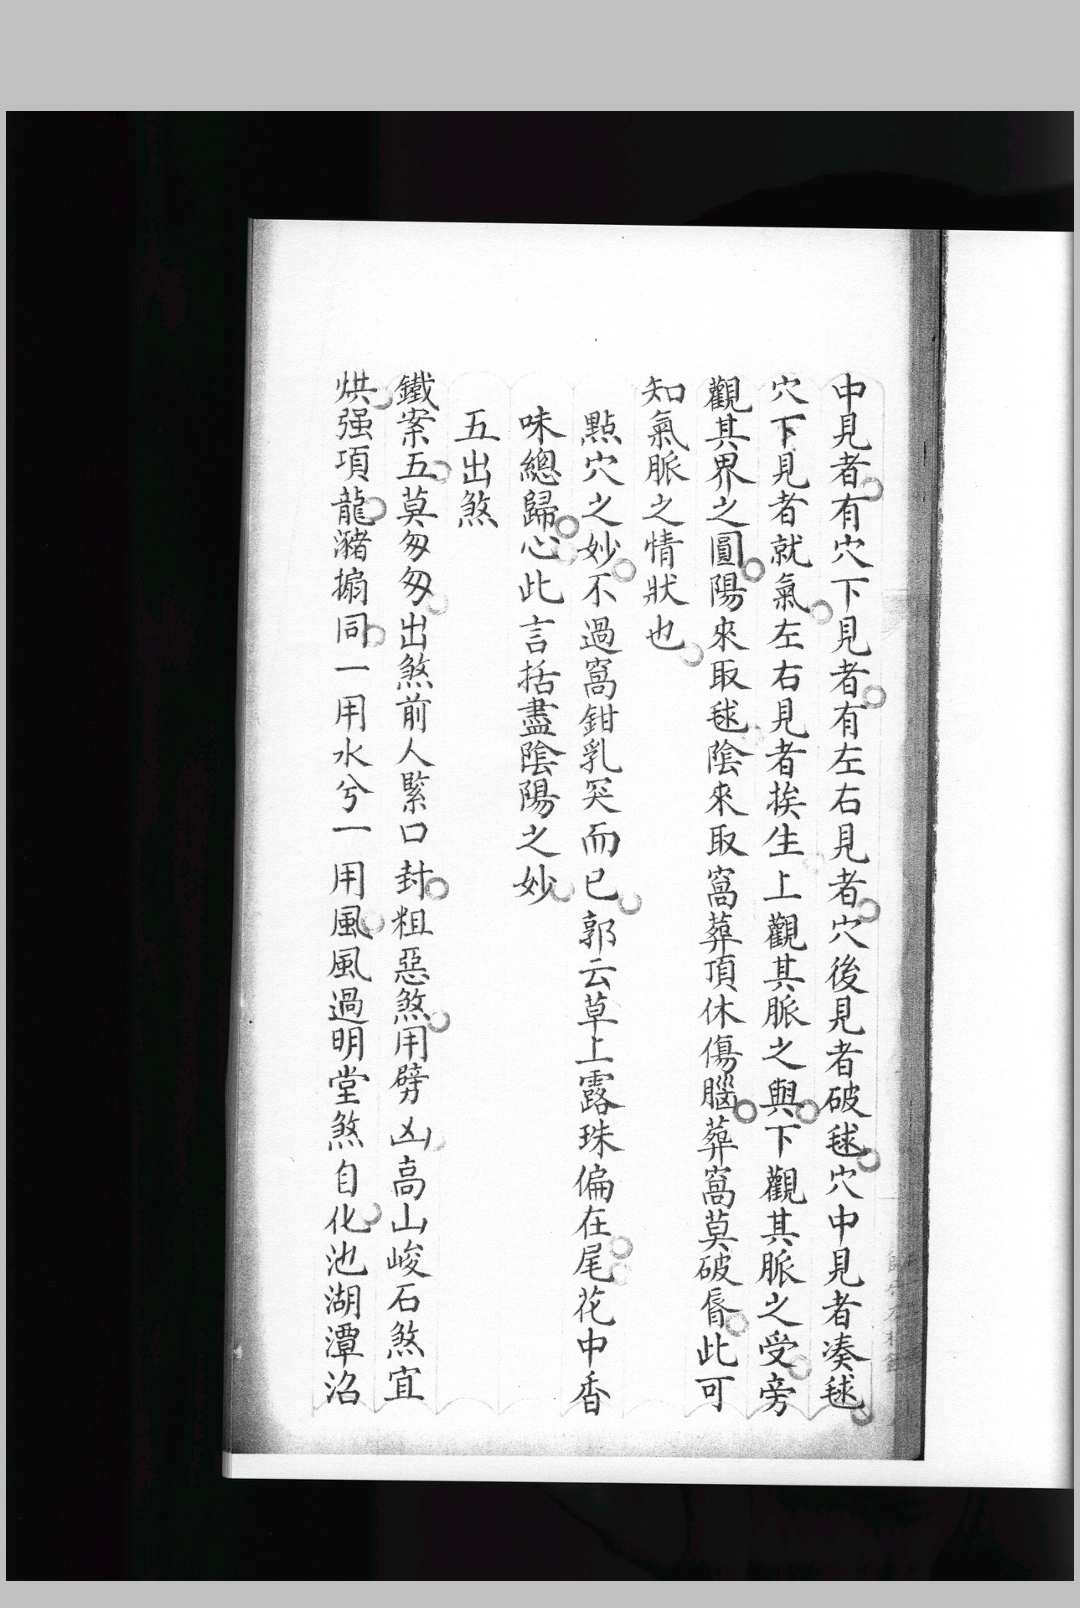 中見者有穴下見者有左右見者穴後見者破毬穴中見者湊毬
穴下見者就氣左右見者挨生上觀其脈之與下觀其脈之受旁
觀其界之圓陽來取毬陰來取窩葬頂休傷腦葬窩莫破唇此可
知氣脈之情狀也
點穴之妙不過窩鉗乳突而已郭云草上露珠偏在尾花中香
味總歸心此言括盡陰陽之妙
五出煞
鐵案五莫匆匆出煞前人緊口封粗惡煞用劈凶高山峻石煞宜
烘强項龍瀦搧同一用水兮一用風風過明堂煞自化池湖潭沼